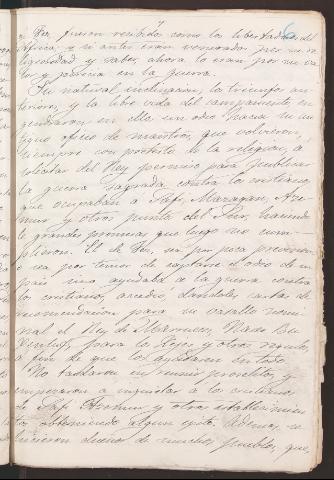 6
7
á Fez, fueron recibidos como los libertadores del
Africa, y si antes eran venerados por su re
ligiosidad y saber, ahora lo eran por su va
lor y pericia en la guerra.
Su natural inclinacion, los triunfos an
teriores, y la libre vida del campamento en
gendraron en ellos un odio hacia su an
tiguo oficio de maestros, que volvieron,
siempre con pretesto de la religion, á
solicitar del Rey permiso para publicar
la guerra sagrada contra los cristianos
que ocupaban á Safi, Mazagan, Aza
mur y otros puntos del Sur, haciendo
le grandes promesas que luego no cum
plieron. El de Fez, sea por poca prevision
o sea por temor de captarse el odio de su
pais sino ayudaba á la guerra contra
los cristianos, accedio, dandoles cartas de
recomendacion para su vasallo nomi
nal el Rey de Marruecos, Nacer Bu
para los Xejes y otros
á fin de que los ayudasen en todo.
No tardaron en reunir proselitos, y
empezaron á inquietar á los cristianos
de Safi Azamur y otros establecimien
tos obteniendo algun exito. Ademas, se
hicieron dueños de muchos pueblos, que,